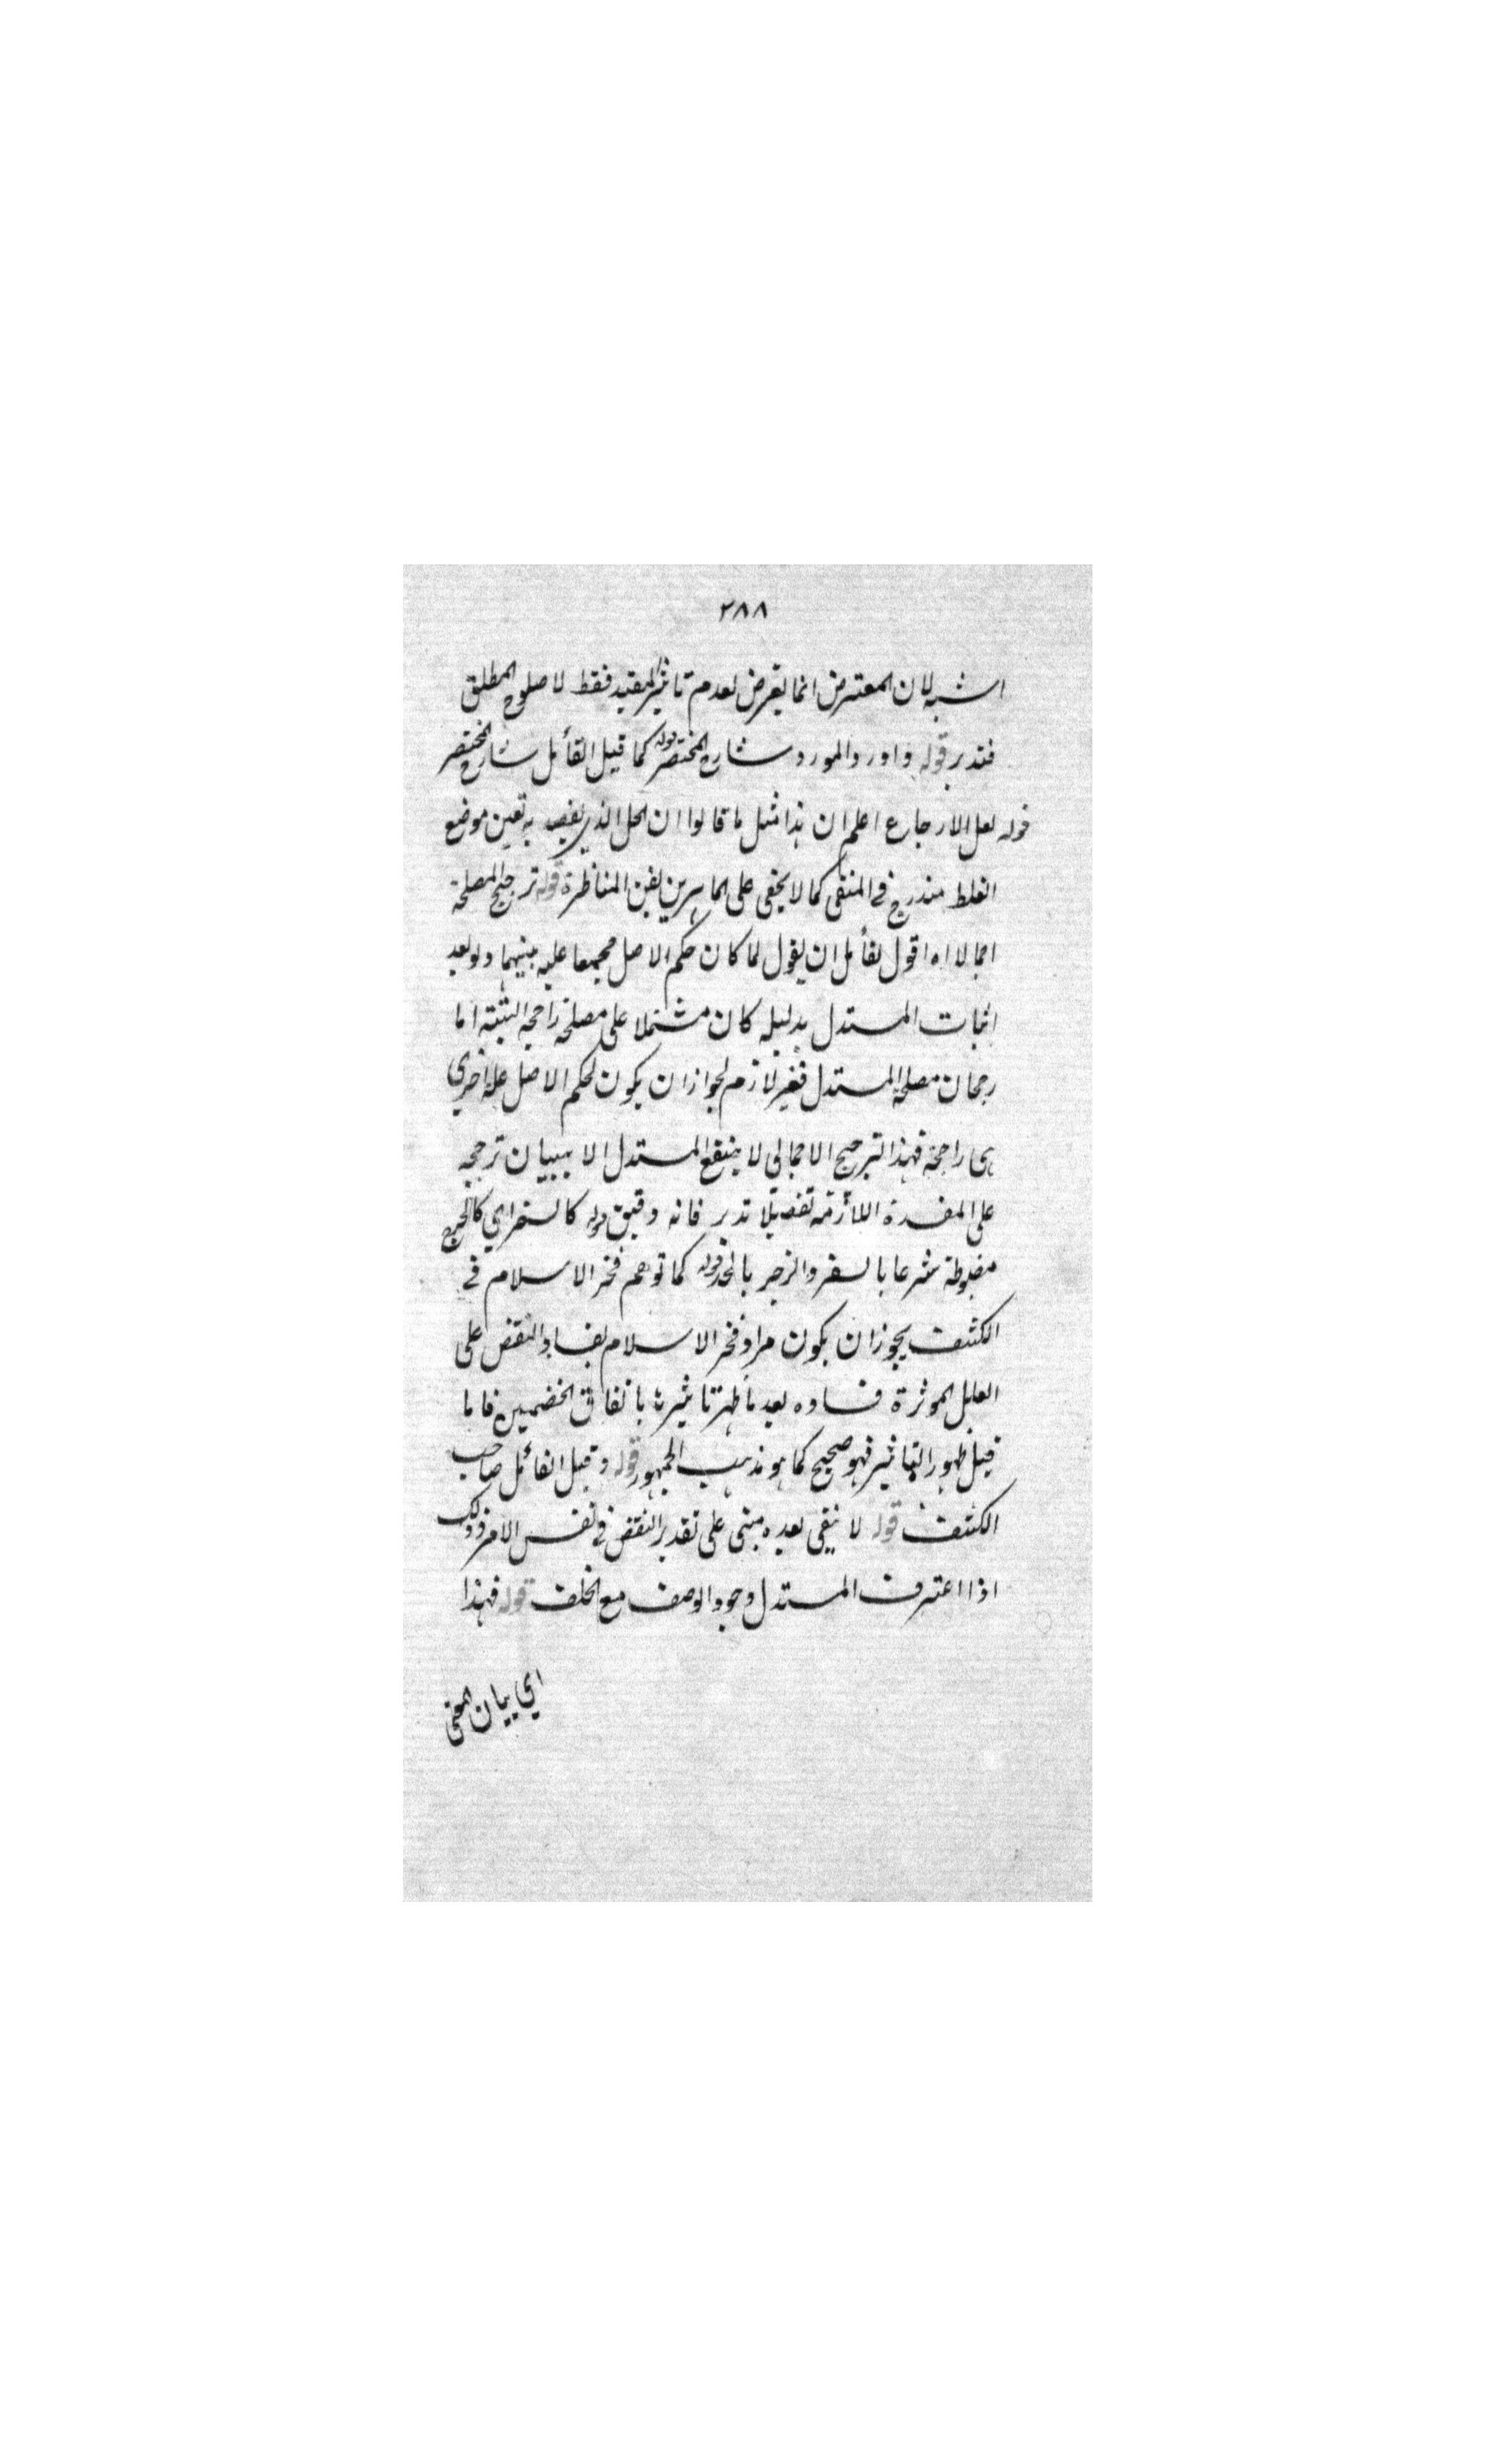 ٢٨٨
اشبه لان المعترض انما يعرض لعدم تاثير المقيد فقط لا صلوح المطلق
فتدبر قوله واورد المورد شارح المختصر قوله كما قيل القائل شارح المختصر
قوله لعل الارجاع اعلم ان هذا مثل ما قالوا ان الحل الذي يقصد به تعين موضع
الغلط مندرج في المنع كما لا يخفى على الماهرين لفن المناظرة قوله ترجيح المصلحة
اجمالا اه اقول لقائل ان يقول لما كان حكم الاصل مجمعا عليه بينهما ولو بعد
اثبات المستدل بدليله كان مشتملا على مصلحة راجحة البتة اما
رجحان مصلحة المستدل فغير لازم لجواز ان يكون لحكم الاصل علة اخرى
هي راجحة فهذا الترجيح الاجمالي لا ينفع المستدل الا ببيان ترجيحه
على المفسدة اللازمة تفصيلا تدبر فانه دقيق قوله كالسفر اي كالحرج
مضبوطة شرعا بالسفر والزجر بالحد قوله كما توهم فخر الاسلام في
الكشف يجوز ان يكون مراد فخر الاسلام بفساد النقض على
العلل الموثرة فساده بعد ما ظهر تاثيرها باتفاق الخصمين فاما
قبل ظهور التاثير فهو صحيح كما هو مذهب الجمهور قوله وقيل القائل صاحب
الكشف قوله لا نفي بعده مبنى على تقدير النقض في نفس الامر وذلك
اذا اعترف المستدل وجود الوصف مع الخلف قوله فهذا
اي بيان